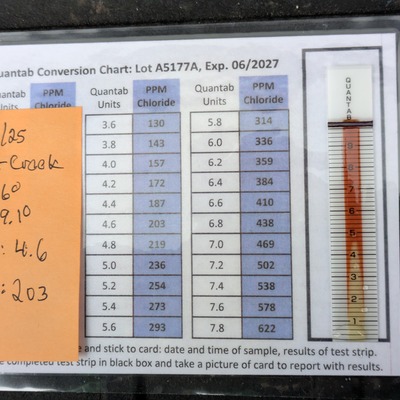 uantab Conversion Chart: Lot A5177A, Exp. 06/2027
Quantab Units PPM Chloride Quantab Units PPM Chloride
3.6 130 5.8 314
3.8 143 6.0 336
4.0 157 6.2 359
4.2 172 6.4 384
4.4 187 6.6 410
4.6 203 6.8 438
4.8 219 7.0 469
5.0 236 7.2 502
5.2 254 7.4 538
5.4 273 7.6 578
5.6 293 7.8 622
uantab Units
PPM
/25
Creek
6°
9.1°
: 4.6
: 203
QUANTAB
9
8
7
6
5
4
3
2
1
e and stick to card: date and time of sample, results of test strip.
completed test strip in black box and take a picture of card to report with results.